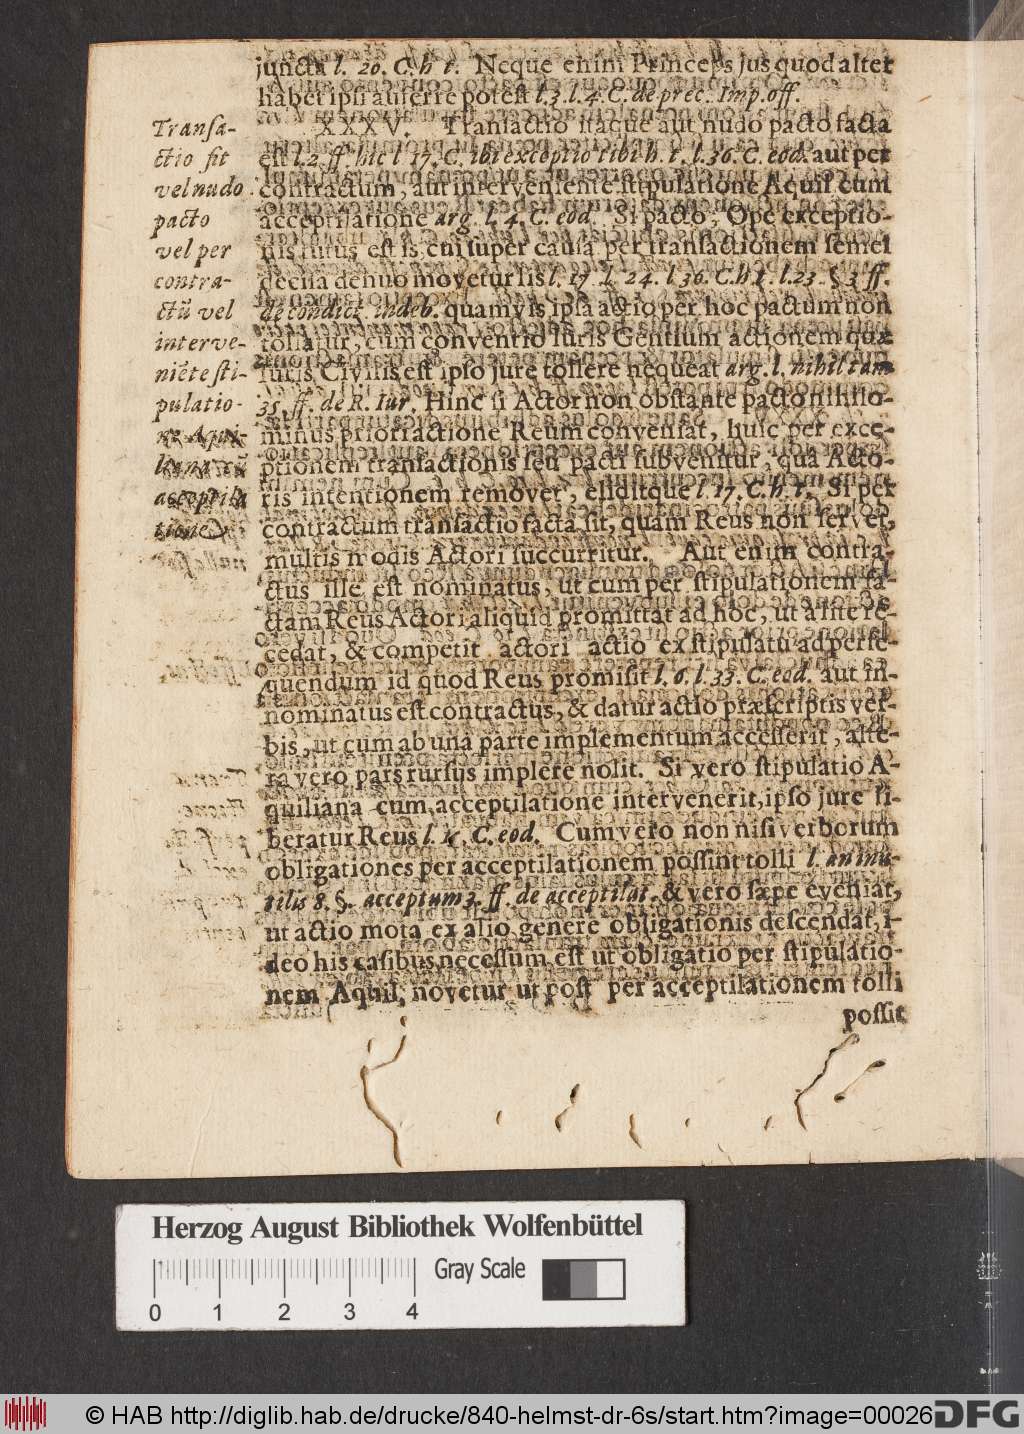 juncta l. 20. C. h t. Neque enim Princeps jus quod alter
habet ipsi auferre potest l. 3. l. 4. C. de prec. Imp. off.
XXXV. Transactio itaque aut nudo pacto facta
est l. 2. ff. hic l 17. C. ibi exceptio tibi h. t. l. 36. C. eod. aut per
contractum, aut interveniente stipulatione Aquil cum
acceptilatione arg. l. 4. C. eod. Si pacto, Ope exceptio-
nis tutus est is, cui super causa per transactionem semel
decisa denuo movetur lis l. 17. l. 24. l. 36. C. h t. l. 23. § 3 ff.
de condict. indeb. quamvis ipsa actio per hoc pactum non
tollatur, cum conventio Iuris Gentium actionem quæ
Iuris Civilis est ipso jure tollere nequeat arg. l. nihil tam
35. ff. de R. Iur. Hinc si Actor non obstante pacto nihilo-
minus priori actione Reum conveniat, huic per exce-
ptionem transactionis seu pacti subvenitur, quâ Acto-
ris intentionem removet, eliditque l. 17. C. h. t. Si per
contractum transactio facta sit, quam Reus non servet,
multis modis Actori succurritur. Aut enim contra-
ctus ille est nominatus, ut cum per stipulationem fa-
ctam Reus Actori aliquid promittat ad hoc, ut à lite re-
cedat, & competit actori actio ex stipulatu ad perse-
quendum id quod Reus promisit l. 6. l. 33. C. eod. aut in-
nominatus est contractus, & datur actio præscriptis ver-
bis, ut cum ab una parte implementum accesserit, alte-
ra vero pars rursus implere nolit. Si vero stipulatio A-
quiliana cum acceptilatione intervenerit, ipso jure li-
beratur Reus C. eod. Cum vero non nisi verborum
obligationes per acceptilationem possint tolli l. an inu-
tilis 8. §. acceptum 3. ff. de acceptilat. & vero sæpe eveniat,
ut actio mota ex alio genere obligationis descendat, i-
deo his casibus necessum est ut obligatio per stipulatio-
nem Aquil, novetur ut post per acceptilationem tolli
possit
Transa-
ctio fit
vel nudo
pacto
vel per
contra-
ctū vel
interve-
niēte sti-
pulatio-
ne Aqui-
liana cū
acceptila
tione
Herzog August Bibliothek Wolfenbüttel
Gray Scale
0 1 2 3 4
© HAB http://diglib.hab.de/drucke/840-helmst-dr-6s/start.htm?image=00026
DFG